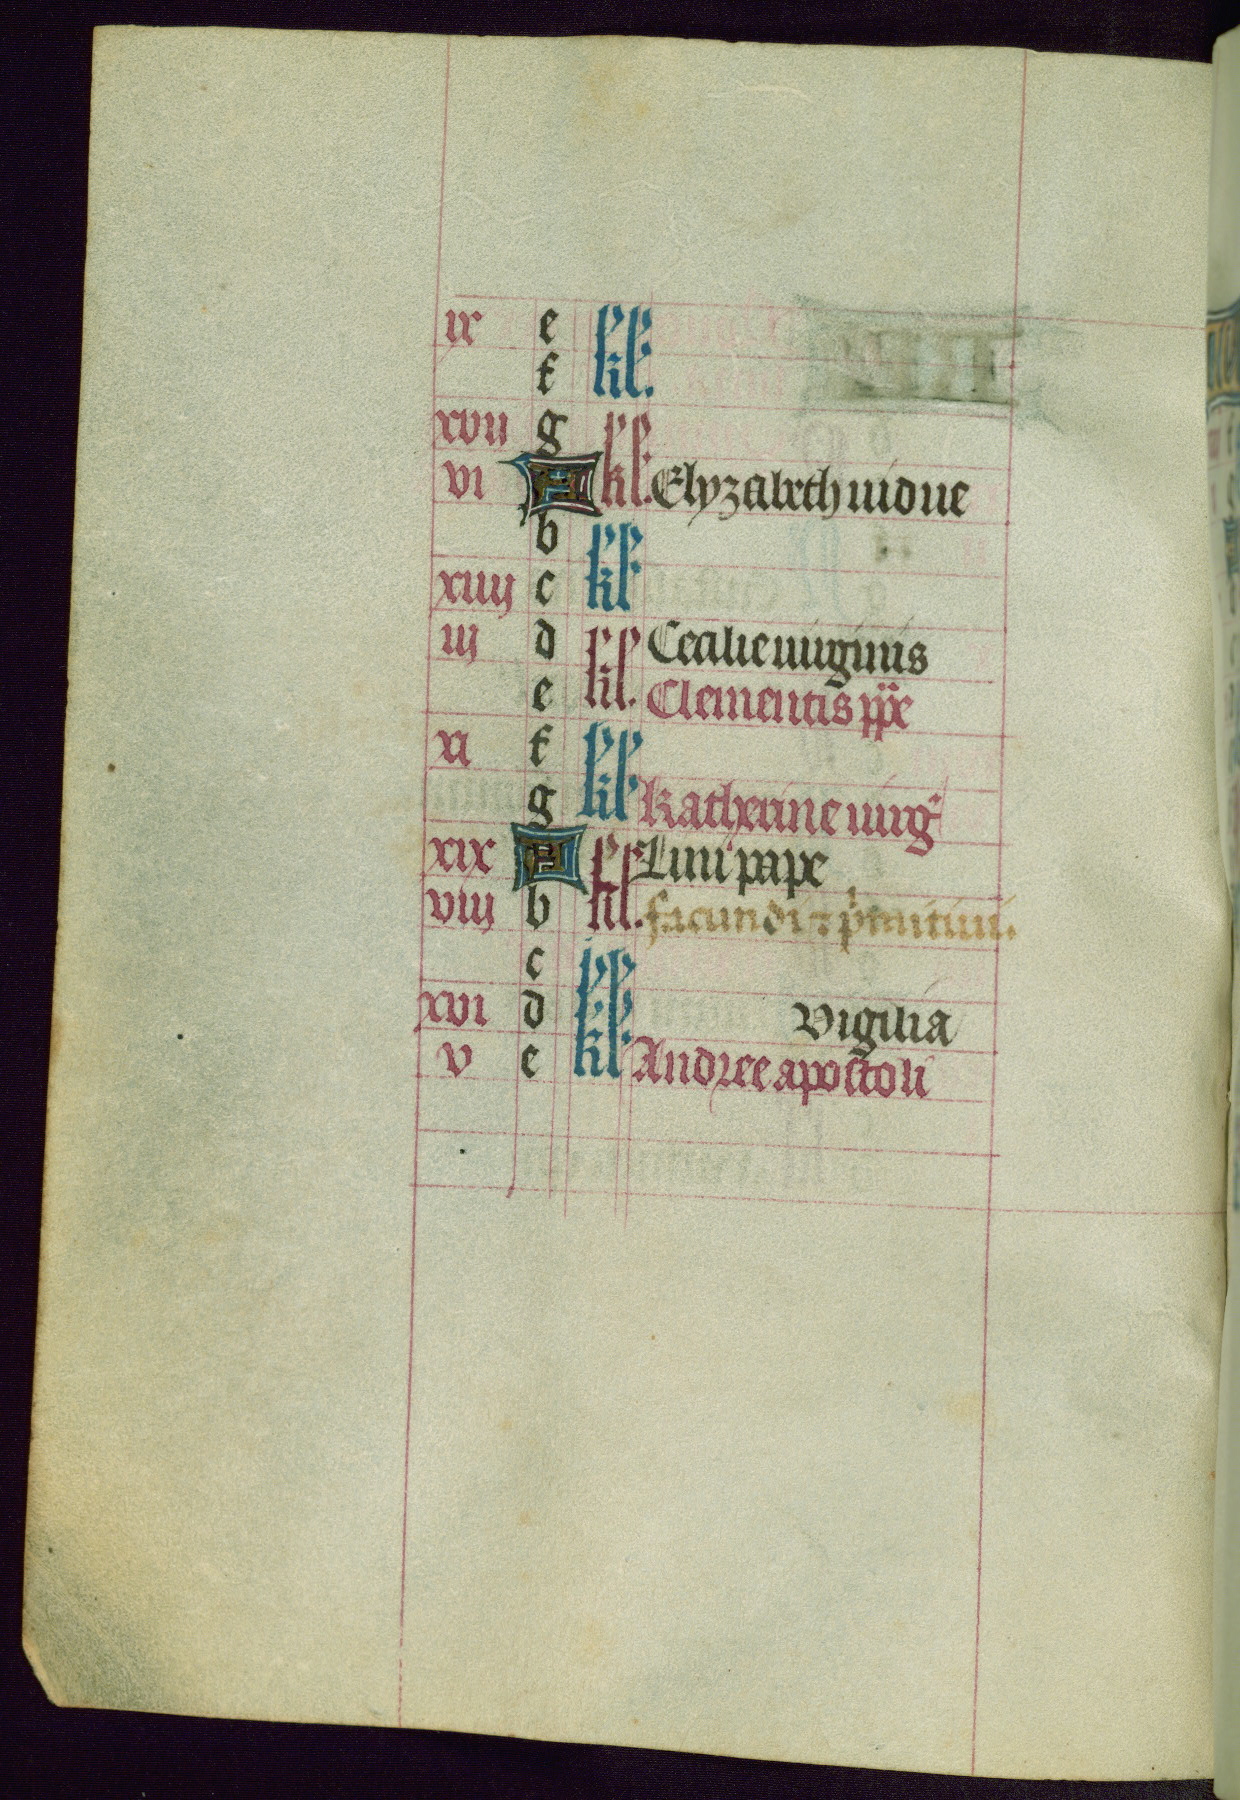 ix e kl
f kl.
xvii g kl
vi A kl. Elyzabeth uidue
b kl
xiiij c kl
iij d kl Cecilie uirginis
e kl. Clementis ppe
xi f kl
g kl Katherine uirg
xix A kl Lini pape
viij b kl. facundi ⁊ primitiui.
c kl
xvi d kl Vigilia
v e kl Andree apostoli